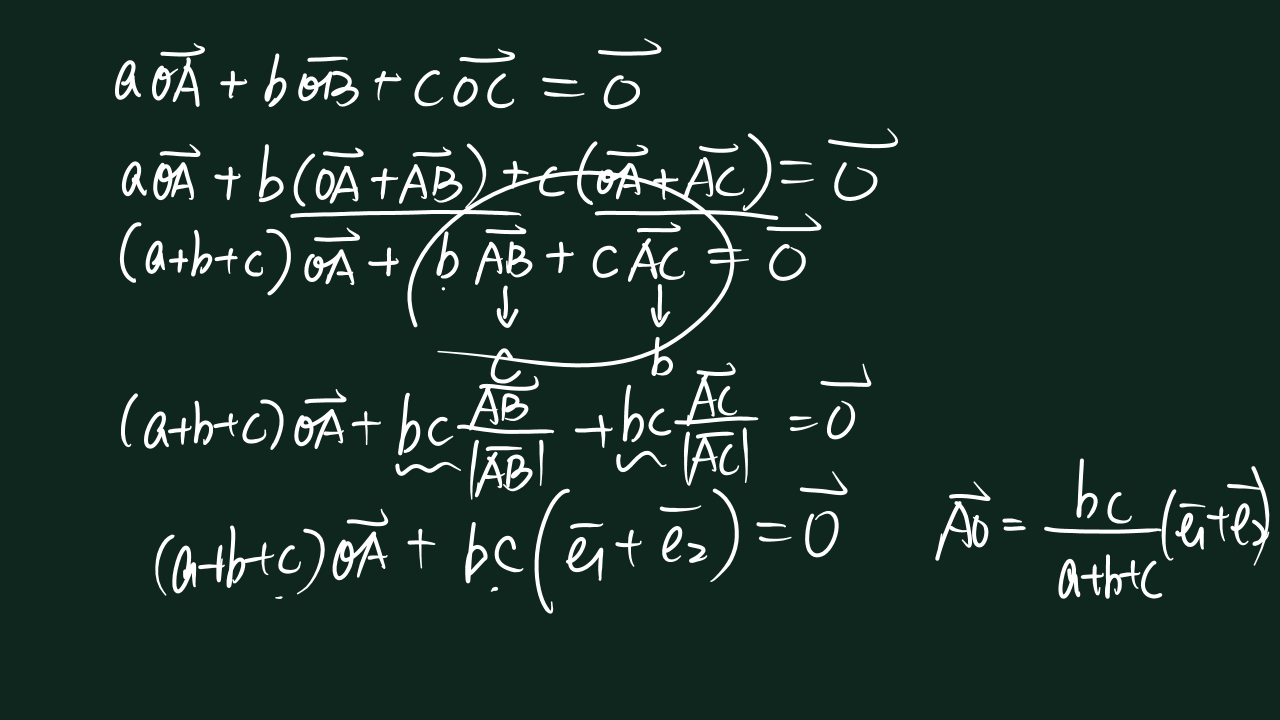 a\vec{OA} + b\vec{OB} + c\vec{OC} = \vec{0}
a\vec{OA} + b(\vec{OA} + \vec{AB}) + c(\vec{OA} + \vec{AC}) = \vec{0}
(a+b+c)\vec{OA} + b\vec{AB} + c\vec{AC} = \vec{0}
↓ ↓
c b
(a+b+c)\vec{OA} + bc\frac{\vec{AB}}{|\vec{AB}|} + bc\frac{\vec{AC}}{|\vec{AC}|} = \vec{0}
(a+b+c)\vec{OA} + bc(\vec{e_1} + \vec{e_2}) = \vec{0}
\vec{AO} = \frac{bc}{a+b+c}(\vec{e_1} + \vec{e_2})